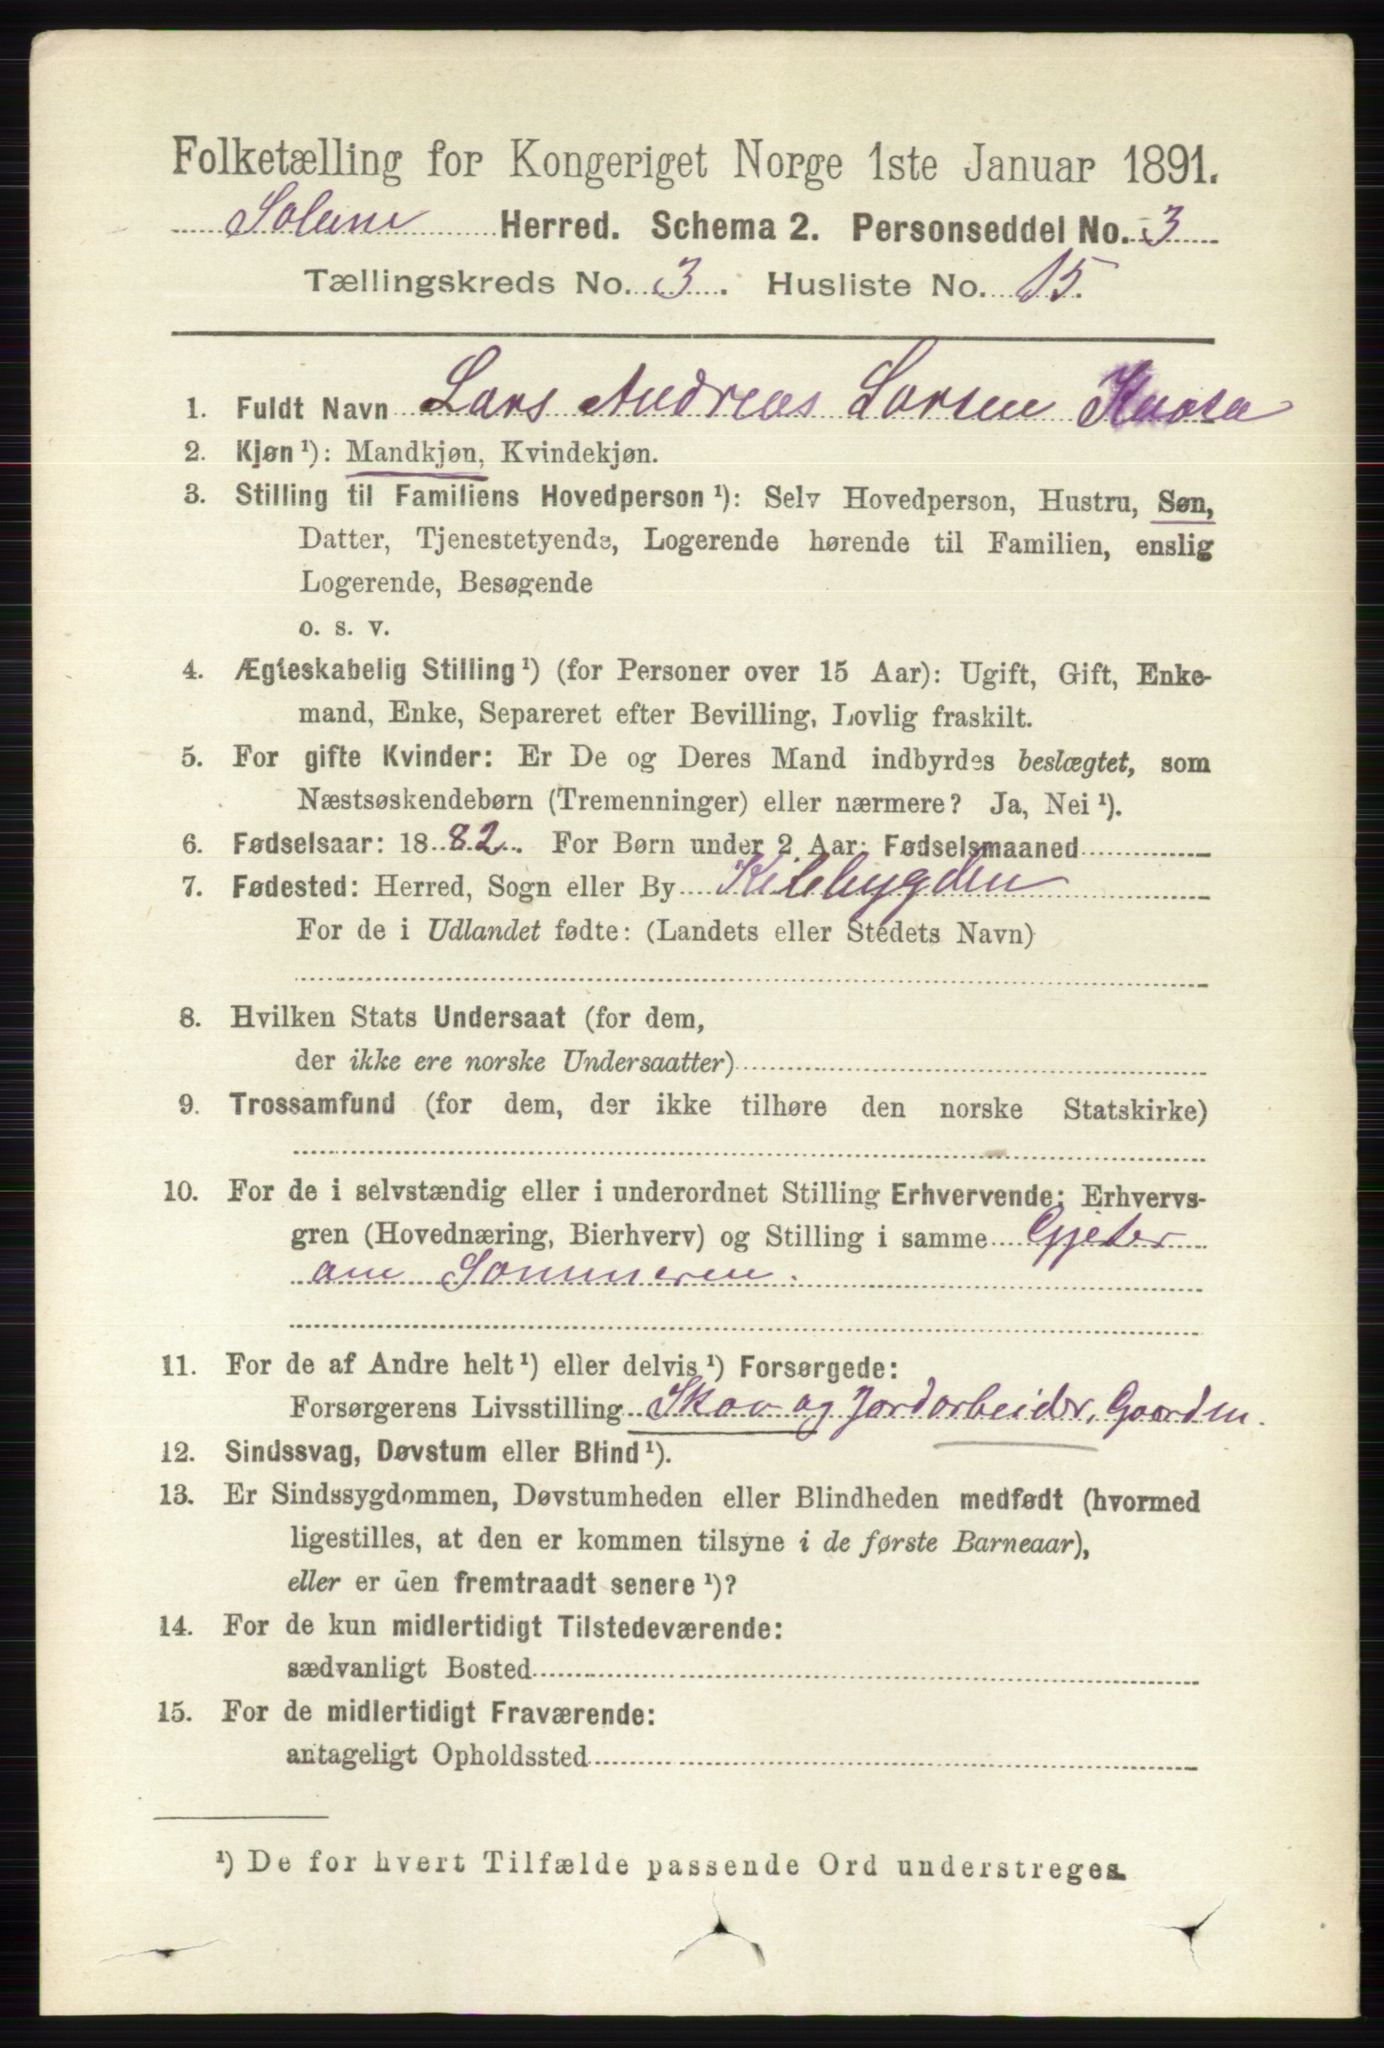 Folketælling for Kongeriget Norge 1ste Januar 1891.
Solum Herred. Schema 2. Personseddel No. 3
Tællingskreds No. 3. Husliste No. 15.
1. Fuldt Navn Lars Andreas Larsen
2. Kjøn ¹): Mandkjøn, Kvindekjøn.
3. Stilling til Familiens Hovedperson ¹): Selv Hovedperson, Hustru, Søn,
Datter, Tjenestetyende, Logerende hørende til Familien, enslig
Logerende, Besøgende
o. s. v.
4. Ægteskabelig Stilling ¹) (for Personer over 15 Aar): Ugift, Gift, Enke-
mand, Enke, Separeret efter Bevilling, Lovlig fraskilt.
5. For gifte Kvinder: Er De og Deres Mand indbyrdes beslægtet, som
Næstsøskendebørn (Tremenninger) eller nærmere? Ja, Nei ¹).
6. Fødselsaar: 1882. For Børn under 2 Aar: Fødselsmaaned
7. Fødested: Herred, Sogn eller By Kilebygden
For de i Udlandet fødte: (Landets eller Stedets Navn)
8. Hvilken Stats Undersaat (for dem,
der ikke ere norske Undersaatter)
9. Trossamfund (for dem, der ikke tilhøre den norske Statskirke)
10. For de i selvstændig eller i underordnet Stilling Erhvervende: Erhvervs-
gren (Hovednæring, Bierhverv) og Stilling i samme Gjeter
om Sommeren.
11. For de af Andre helt ¹) eller delvis ¹) Forsørgede:
Forsørgerens Livsstilling Skov og Jordarbeider, Gaarden.
12. Sindssvag, Døvstum eller Blind ¹).
13. Er Sindssygdommen, Døvstumheden eller Blindheden medfødt (hvormed
ligestilles, at den er kommen tilsyne i de første Barneaar),
eller er den fremtraadt senere ¹)?
14. For de kun midlertidigt Tilstedeværende:
sædvanligt Bosted
15. For de midlertidigt Fraværende:
antageligt Opholdssted
¹) De for hvert Tilfælde passende Ord understreges.